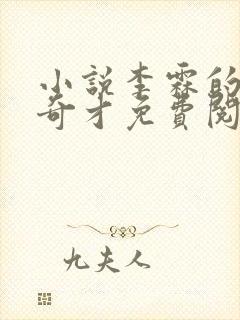 小説李霖的
奇才免費閱
九夫人